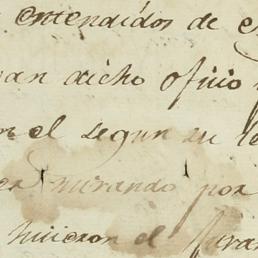 entendidos de e
an dicho oficio
n el segun su le
er mirando por
hicieron el Juram